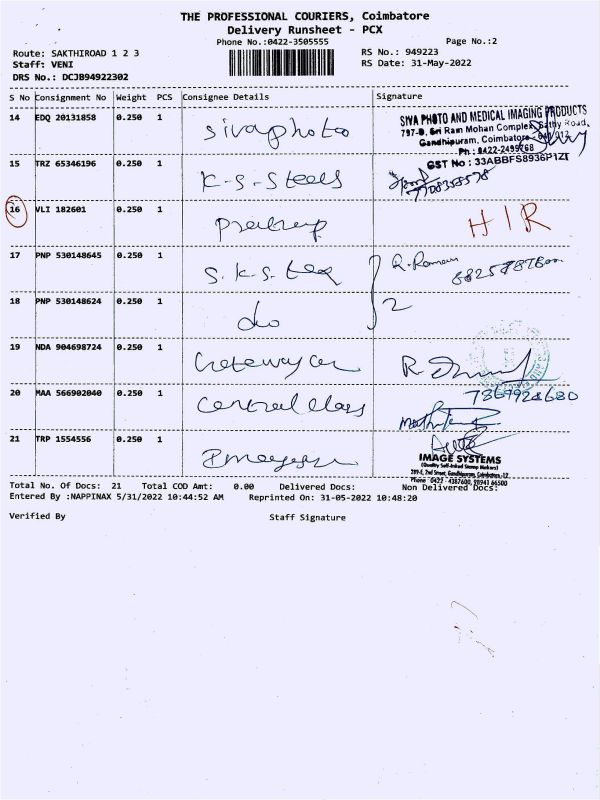 THE PROFESSIONAL COURIERS, Coimbatore
Delivery Runsheet - PCX
Phone No.:0422-3505555
Page No.:2
Route: SAKTHIROAD 1 2 3
RS No.: 949223
Staff: VENI
RS Date: 31-May-2022
DRS No.: DCJB94922302
S No Consignment No Weight PCS Consignee Details Signature
14 EDQ 20131858 0.250 1 sivaphoto
SIVA PHOTO AND MEDICAL IMAGING PRODUCTS
797-D, Sri Ram Mohan Complex, Sathy Road,
Gandhipuram, Coimbatore - 641 012
Ph : 0422-2499768
GST No : 33ABBFS8936P1ZI
15 TRZ 65346196 0.250 1 K-S-Steels
7708358578
16 VLI 182601 0.250 1 H/R
17 PNP 530148645 0.250 1 S.K.S. Tex R. Raman
18 PNP 530148624 0.250 1 do 2
19 NDA 904698724 0.250 1
20 MAA 566902040 0.250 1 central
21 TRP 1554556 0.250 1
IMAGE SYSTEMS
(Quality Self-Inked Stamp Makers)
Total No. Of Docs: 21 Total COD Amt: 0.00 Delivered Docs: Non Delivered Docs:
Entered By :NAPPINAX 5/31/2022 10:44:52 AM Reprinted On: 31-05-2022 10:48:20
Verified By Staff Signature